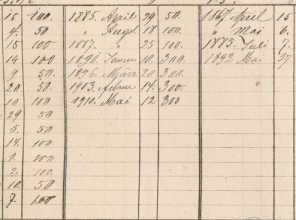 15 100. 1885. April 29 50. 1867 April 15
9. 50. " Augst 18 100. " Mai 6.
15 100. 1887. " 25 100. 1883. Juli 7.
14 100. 1890. Januar 10. 300. 1892. Mai 27
9 50. 1896. März 20. 300.
20 50. 1903. Februar 14. 300
10 100 1910. Mai 12. 300
29 50
5. 50.
18. 100.
1. 100.
2. 100.
10. 50
7. 100